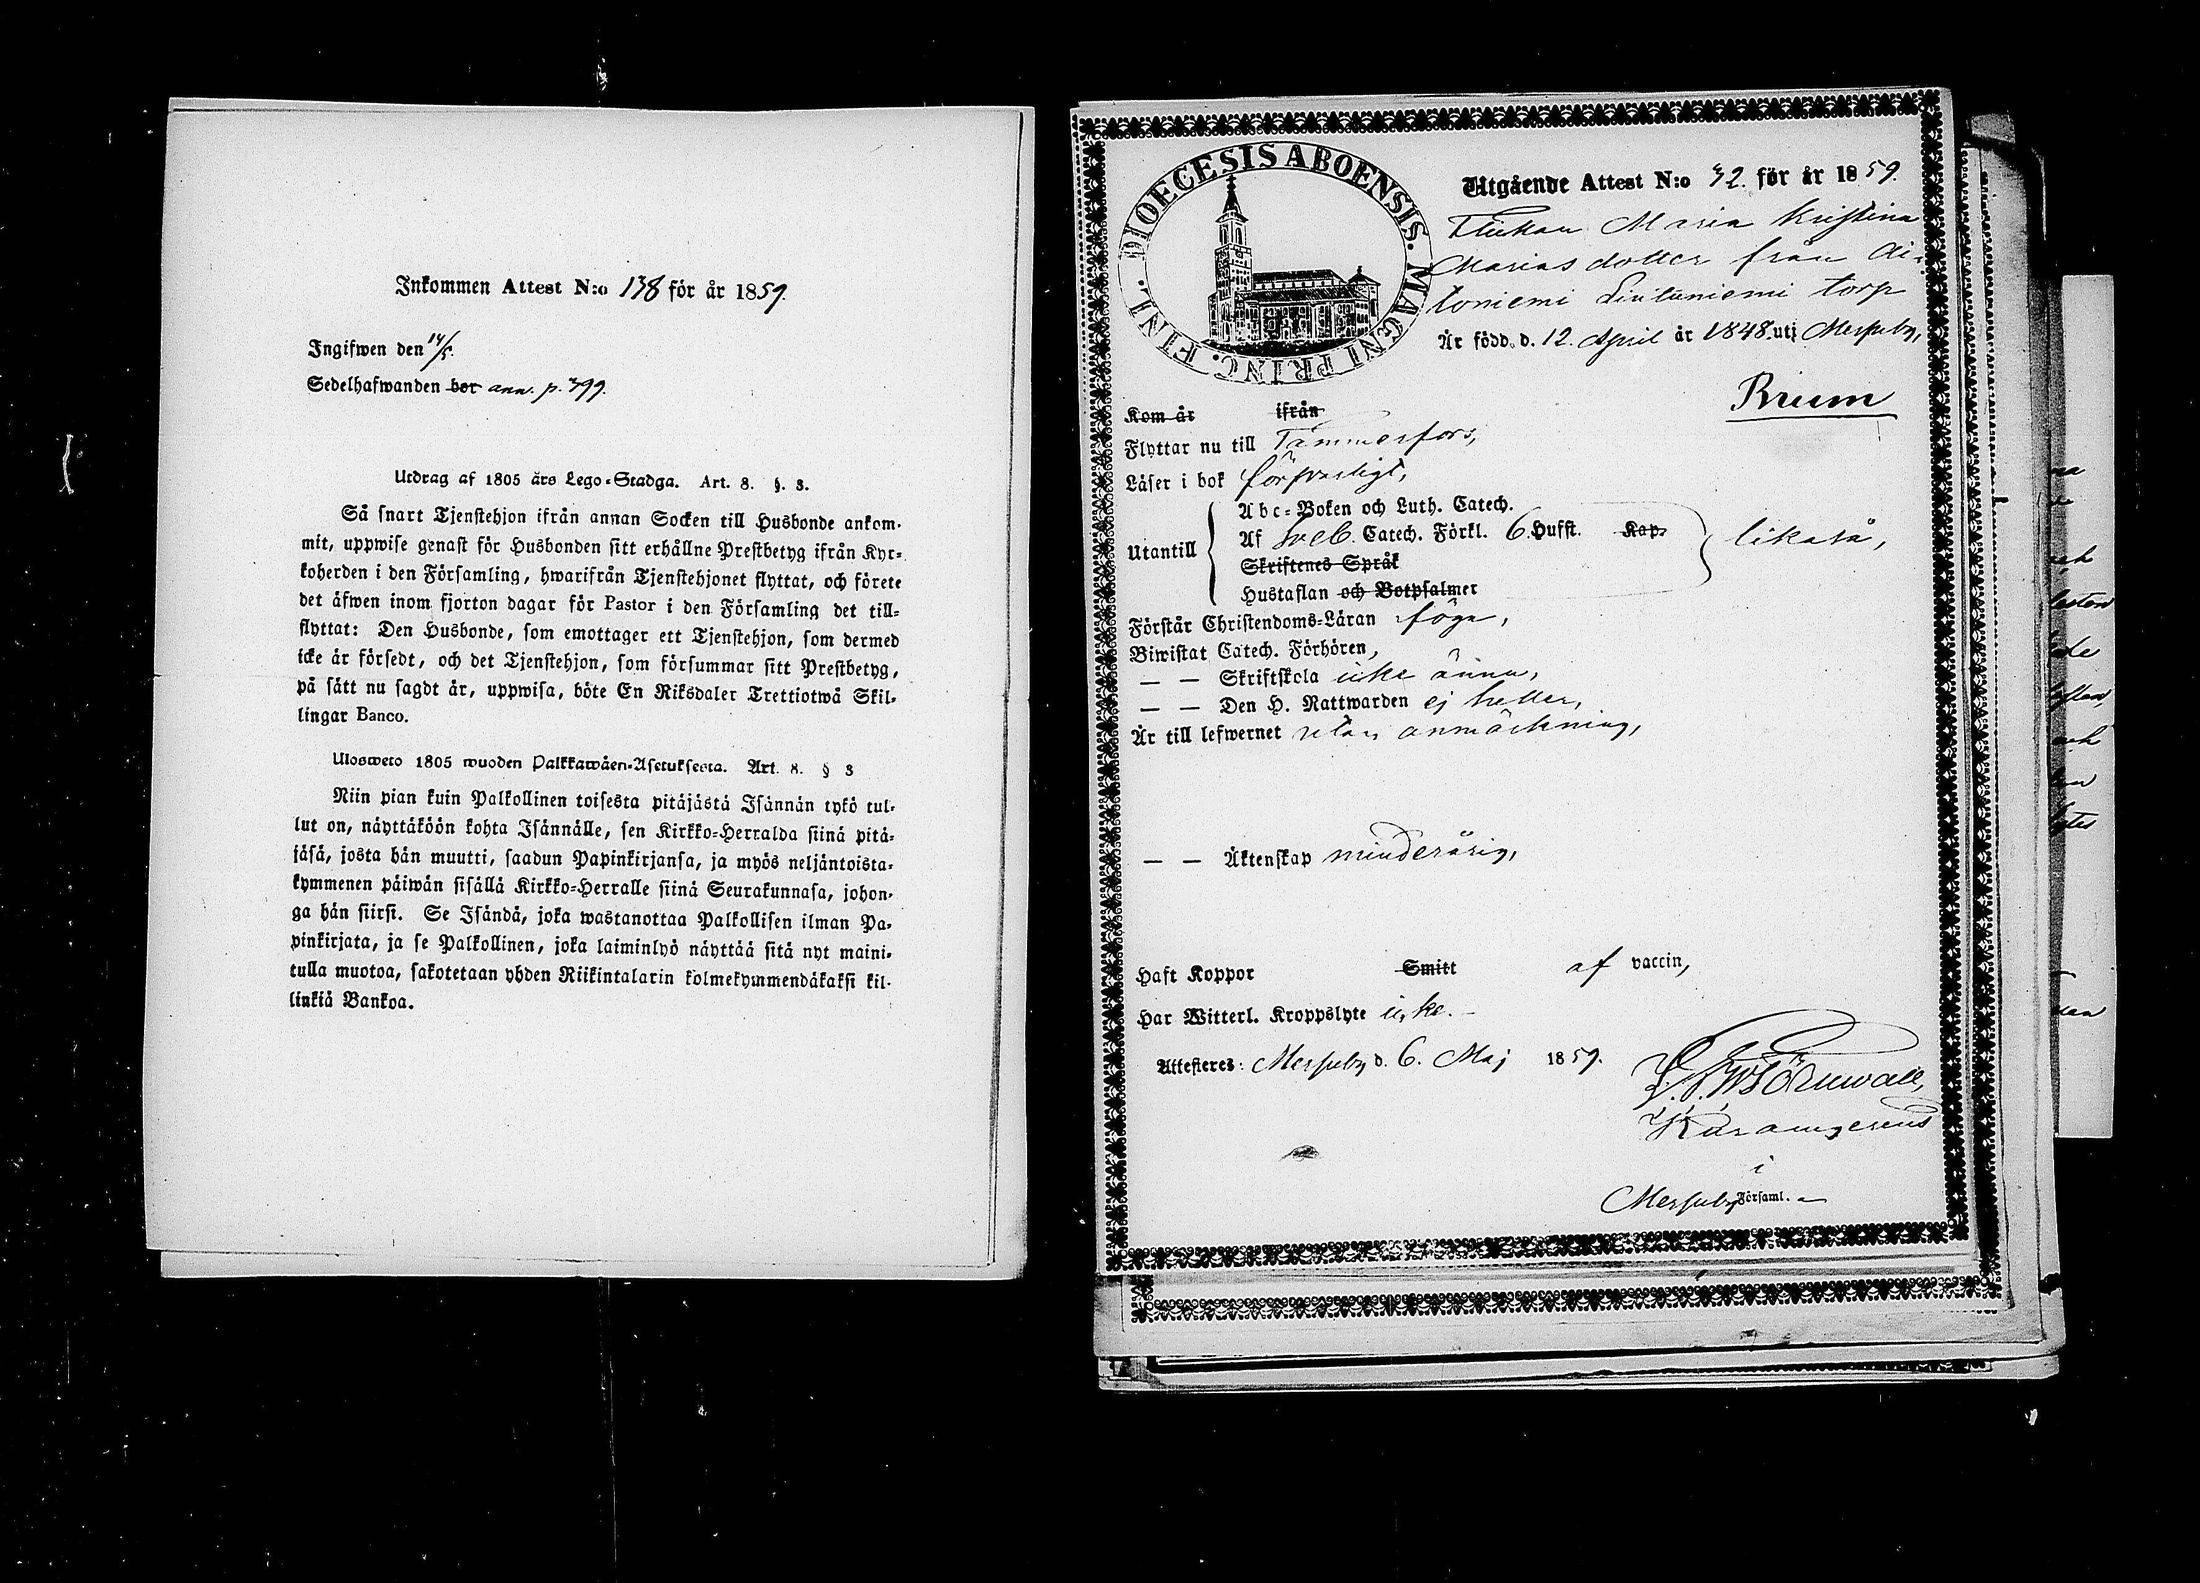 Inkommen Attest N:o 138 för år 1859.
Ingifwen den 14/5.
Sedelhafwanden bor ann. p. 399.
Utdrag af 1805 års Lego-Stadga. Art. 8. §. 3.
Så snart Tjenstehjon ifrån annan Socken till Husbonde ankom-
mit, uppwise genast för Husbonden sitt erhållne Prestbetyg ifrån Kyr-
koherden i den Församling, hwarifrån Tjenstehjonet flyttat, och förete
det äfwen inom fjorton dagar för Pastor i den Församling det till-
flyttat: Den Husbonde, som emottager ett Tjenstehjon, som dermed
icke är försedt, och det Tjenstehjon, som försummar sitt Prestbetyg,
på sätt nu sagdt är, uppwisa, böte En Riksdaler Trettiotwå Skil-
lingar Banco.
Ulosweto 1805 wuoden Palkkawäen-Asetuksesta. Art. 8. § 3
Niin pian kuin Palkollinen toisesta pitäjästä Isännän tykö tul-
lut on, näyttäköön kohta Isännälle, sen Kirkko-Herralda siinä pitä-
jäsä, josta hän muutti, saadun Papinkirjansa, ja myös neljäntoista-
kymmenen päiwän sisällä Kirkko-Herralle siinä Seurakunnasa, johon-
ga hän siirsi. Se Isändä, joka wastanottaa Palkollisen ilman Pa-
pinkirjata, ja se Palkollinen, joka laiminlyö näyttää sitä nyt maini-
tulla muotoa, sakotetaan yhden Riikintalarin kolmekymmendäkaksi kil-
linkiä Bankoa.
DIOECESIS ABOENSIS. MAGNI PRINC. FINL.
Utgående Attest N:o 32. för år 1859.
Flickan Maria Kristina
Mariasdotter från Ai-
toniemi Liutuniemi torp
Är född d. 12. April år 1848 uti Messuby,
Kom år ifrån
Flyttar nu till Tammerfors,
Läser i bok försvarligt,
Utantill
Abc-Boken och Luth. Catech.
Af Sveb. Catech. Förkl. 6. Hufst. Kap.
Skriftenes Språk
Hustaflan och Botpsalmer
likaså,
Förstår Christendoms-Läran föga,
Biwistat Catech. Förhören,
— — Skriftskola icke ännu,
— — Den H. Nattwarden ej heller,
Är till lefwernet utan anmärkning,
— — Äktenskap minderårig,
Haft Koppor Smitt af vaccin,
Har Witterl. Kroppslyte icke.
Attesteres: Messuby d. 6. Maj 1859.
i
Messuby Församl.